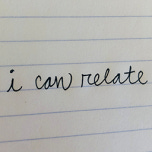 i can relate